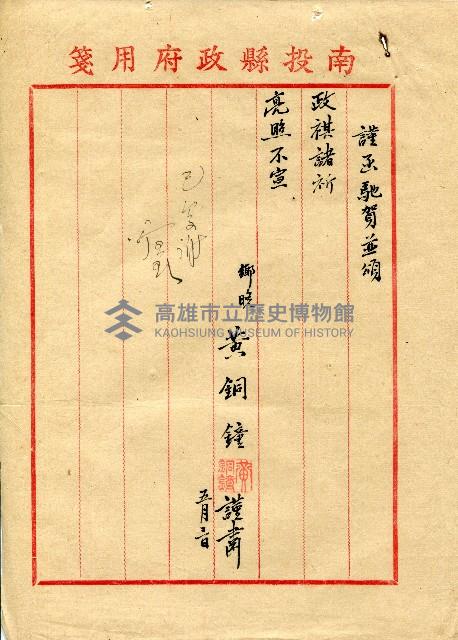 南投縣政府用箋
謹函馳賀並頌
政祺諸祈
亮照不宣
鄉晚
黃銅鐘
謹肅
五月二日
已函謝
高雄市立歷史博物館
KAOHSIUNG MUSEUM OF HISTORY